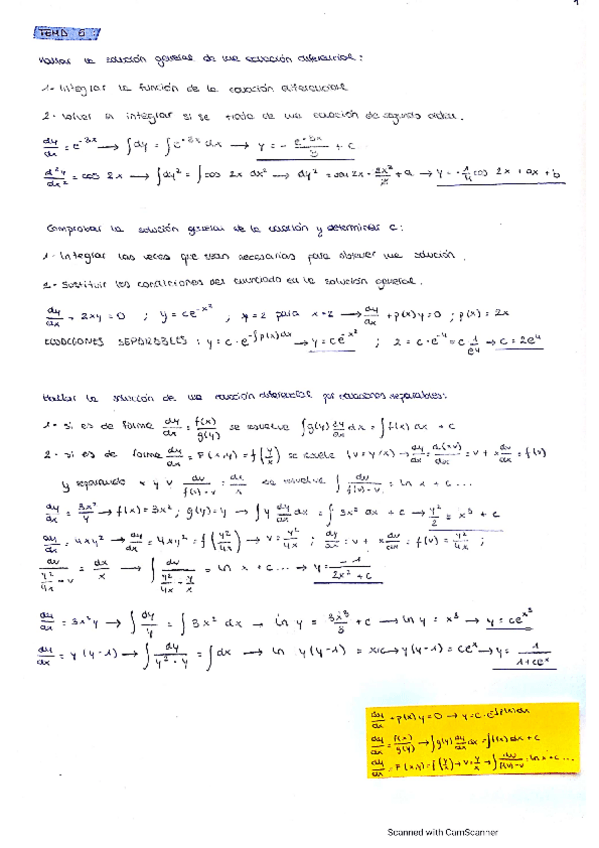 1
TEMA 6:
Hallar la solución general de una ecuación diferencial:
1- Integrar la función de la ecuación diferencial
2- Volver a integrar si se trata de una ecuación de segundo orden.
dy/dx = e^-3x → ∫dy = ∫e^-3x dx → y = - e^-3x/3 + c
d²y/dx² = cos 2x → ∫dy² = ∫cos 2x dx² → dy² = 2x + a → y = -1/4 cos 2x + ax + b
Comprobar la solución general de la ecuación y determinar c:
1- Integrar las veces que sean necesarias para obtener una solución.
2- Sustituir las condiciones del enunciado en la solución general.
dy/dx + 2xy = 0 ; y = ce^-x² ; y = 2 para x = 2 → dy/dx + p(x)y = 0 ; p(x) = 2x
ECUACIONES SEPARABLES: y = c · e^-∫p(x)dx → y = ce^-x² ; 2 = c · e^-4 = c 1/e⁴ → c = 2e⁴
Hallar la solución de una ecuación diferencial por ecuaciones separables:
1- si es de forma dy/dx = f(x)/g(y) se resuelve ∫g(y) dy/dx dx = ∫f(x) dx + c
2- si es de forma dy/dx = F(x,y) = f(y/x) se resuelve (v = y/x) → dy/dx = d(xv)/dx = v + x dv/dx = f(v)
y separando x y v dv/f(v)-v = dx/x se resuelve ∫ dv/f(v)-v = ln x + c ...
dy/dx = 3x²/y → f(x) = 3x² ; g(y) = y → ∫y dy/dx dx = ∫3x² dx + c → y²/2 = x³ + c
dy/dx = 4xy² → dy/dx = 4xy² = f(y²/4x) → v = y²/4x ; dy/dx = v + x dv/dx = f(v) = y²/4x ;
dv/(y²/4x - v) = dx/x → ∫ dv/(y²/4x - y/x) = ln x + c ... → y = -1/(2x² + c)
dy/dx = 3x²y → ∫dy/y = ∫3x² dx → ln y = 3x³/3 + c → ln y = x³ → y = ce^x³
dy/dx = y(y-1) → ∫dy/(y²-y) = ∫dx → ln y(y-1) = x+c → y(y-1) = ce^x → y = 1/(1+ce^x)
dy/dx + p(x)y = 0 → y = c · e^-∫p(x)dx
dy/dx = f(x)/g(y) → ∫g(y) dy/dx dx = ∫f(x) dx + c
dy/dx = F(x,y) = f(y/x) → v = y/x → ∫ dv/f(v)-v = ln x + c ...
Scanned with CamScanner